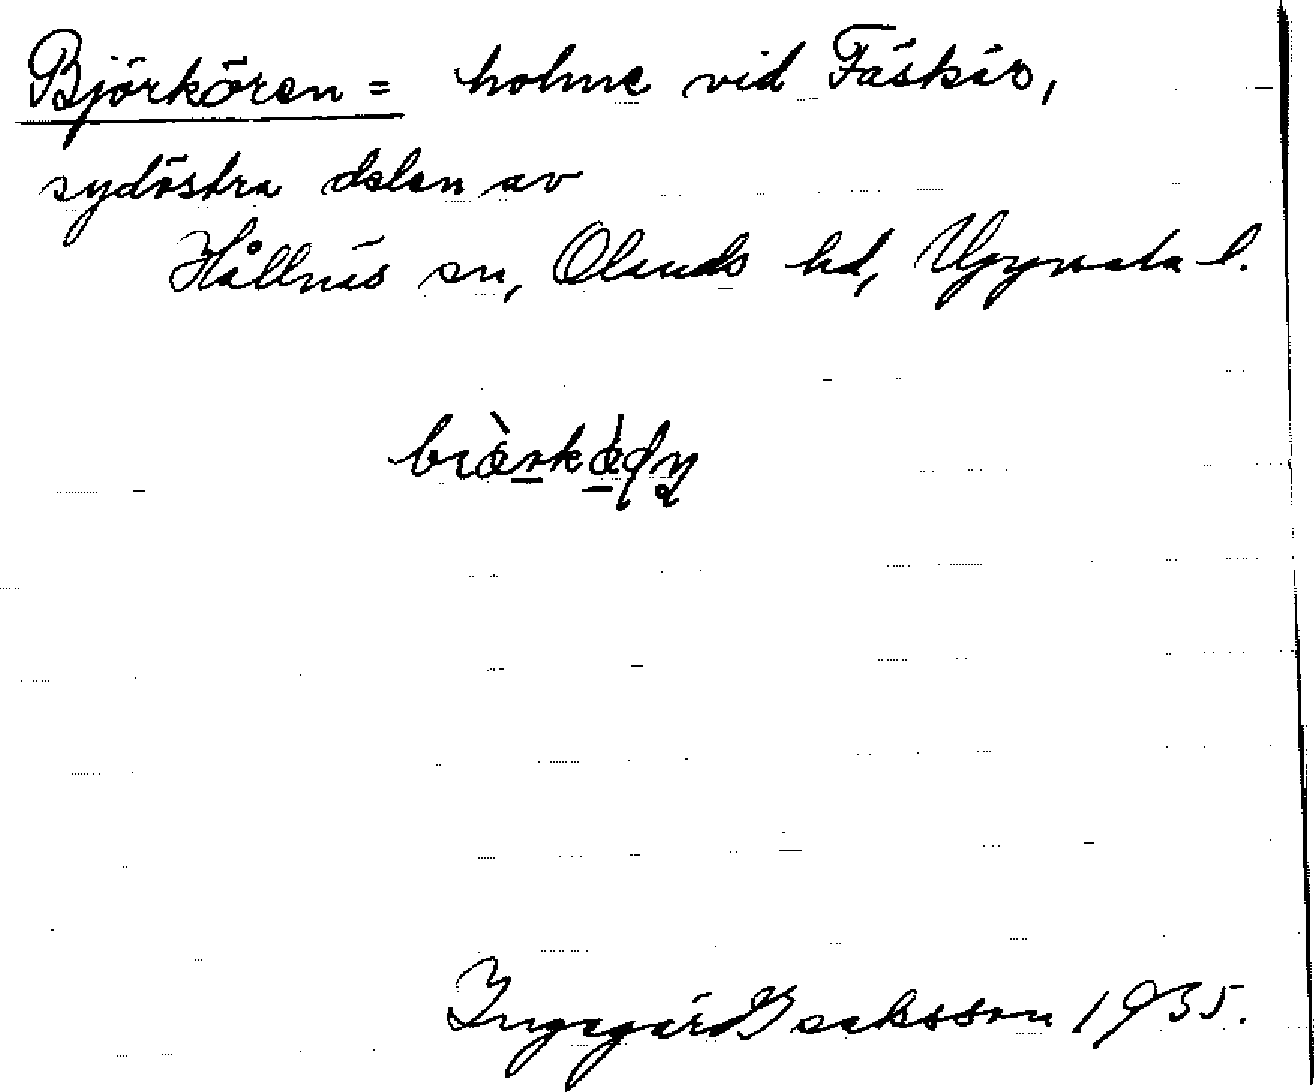 Björkören = holme vid Fäskär,
sydöstra delen av
Hållnäs sn, Olands hd, Uppsala l.
Ingegärd Isaksson 1935.